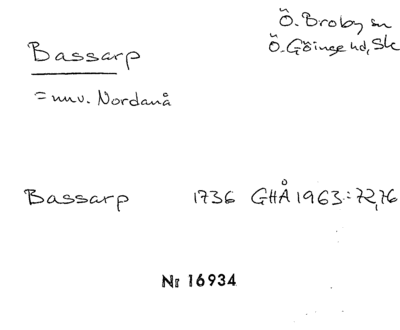 Bassarp
Ö. Broby sn
Ö. Göinge hd, Sk
= nuv. Nordanå
Bassarp 1736 GHÅ 1963:72,76
Nr 16934